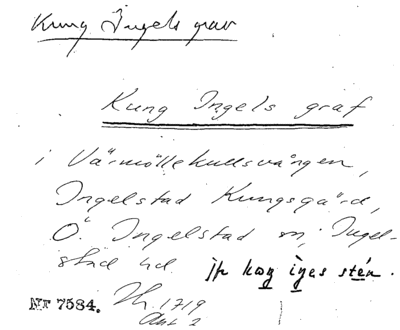 Kung Ingels grav
Kung Ingels graf
i Värmöllekullsvången,
Ingelstad Kungsgård,
Ö. Ingelstad sn, Ingel-
stad hd. jfr
Nr 7584.
1719